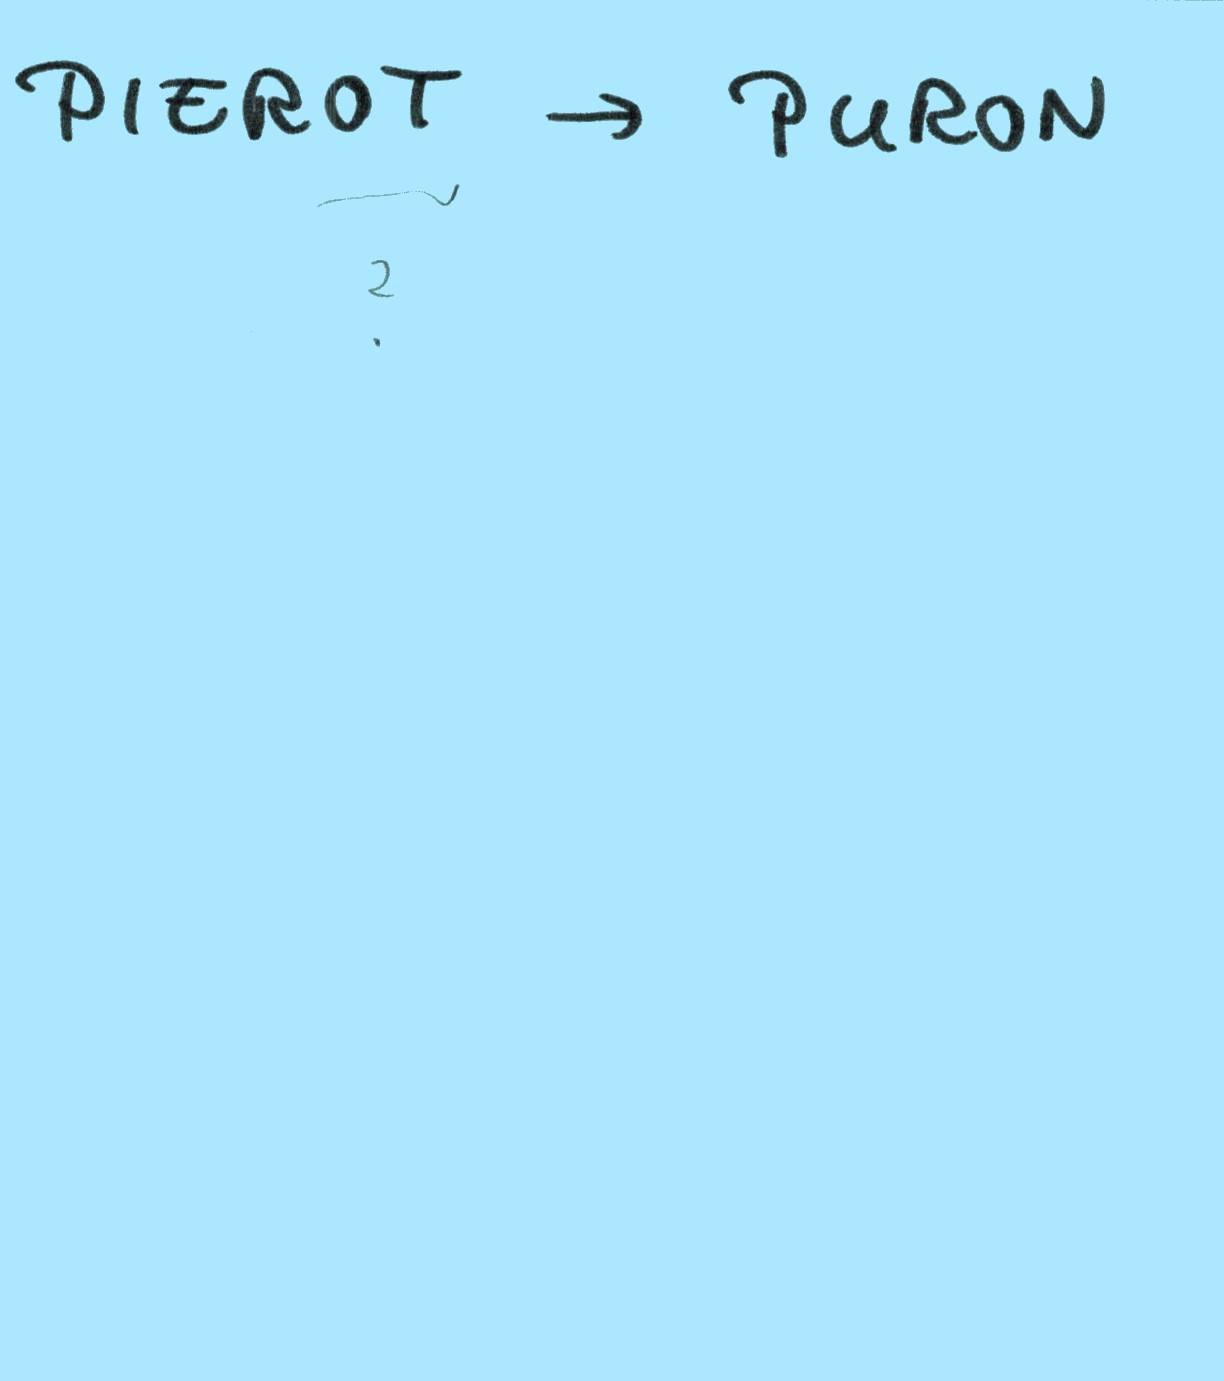 PIEROT → PURON
?